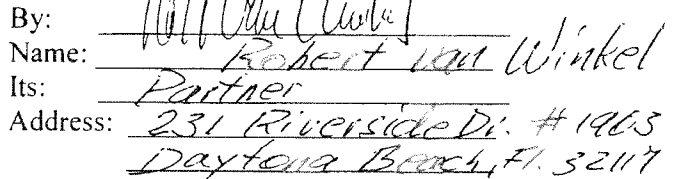 By:
Name: Robert van Winkel
Its: Partner
Address: 231 Riverside Dr. # 1903
Daytona Beach, Fl. 32117